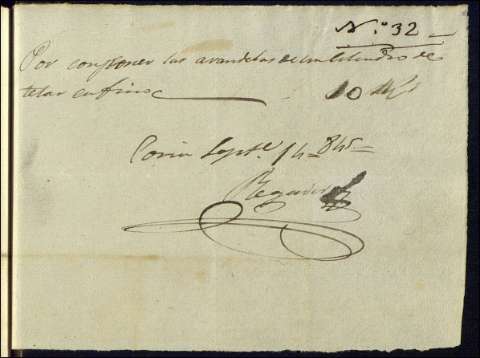 N.º 32
Por componer las arandelas de un cilindro de
telar en fino 10
Coria Septe. 14 - 845 =
Regadera